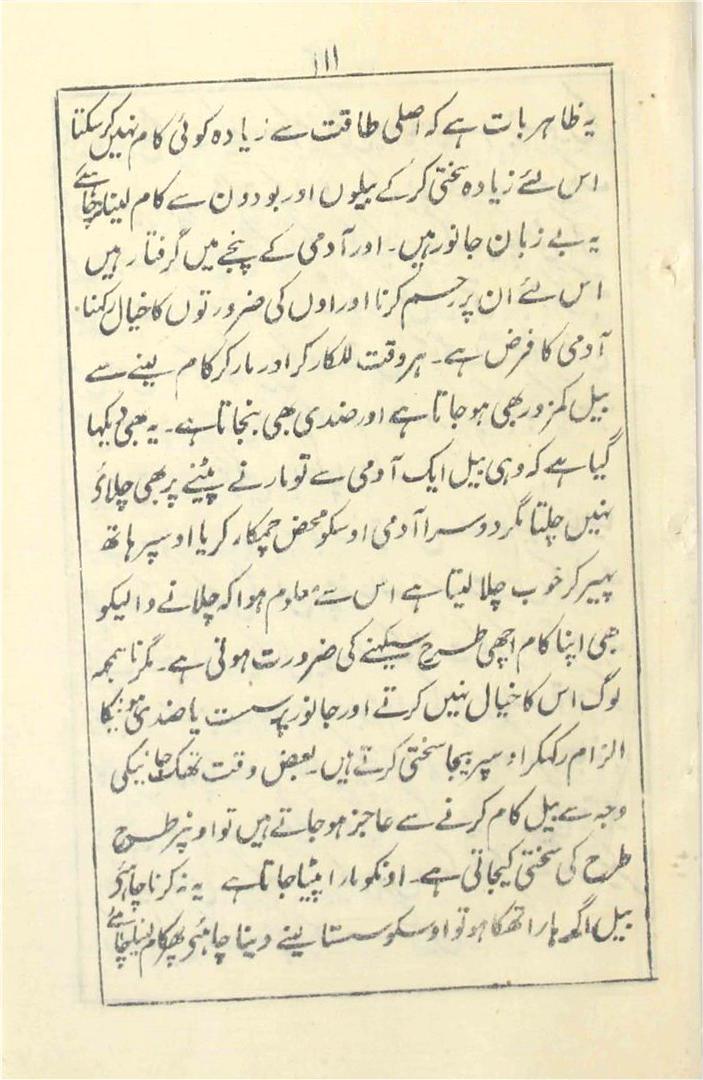 ۱۱۱
یہ ظاہر بات ہے کہ اصلی طاقت سے زیادہ کوئی کام نہیں کرسکتا
اس لئے زیادہ سختی کرکے بیلوں اور بودون سے کام لینا نچاہئے
یہ بے زبان جانور ہیں۔ اور آدمی کے پنجے میں گرفتار ہیں
اس لئے ان پر رحم کرنا اور اون کی ضرورتوں کا خیال رکہنا
آدمی کا فرض ہے۔ ہر وقت للکار کر اور مار کر کام لینے سے
بیل کمزور بھی ہو جاتا ہے اور ضدی بھی بنجاتا ہے۔ یہ بھی دیکہا
گیا ہے کہ وہی بیل ایک آدمی سے تو مارنے پیٹنے پر بھی چلائے
نہیں چلتا مگر دوسرا آدمی اوسکو محض چمکار کر یا اوسپر ہاتھ
پہیر کر خوب چلا لیتا ہے اس سے معلوم ہوا کہ چلانے والیکو
بھی اپنا کام اچھی طرح سیکہنے کی ضرورت ہوتی ہے۔ مگر ناسمجہہ
لوگ اس کا خیال نہیں کرتے اور جانور پر سست یا ضدی ہونیکا
الزام رکہکر اوسپر بیجا سختی کرتے ہیں۔ بعض وقت تھک جانیکی
وجہ سے بیل کام کرنے سے عاجز ہو جاتے ہیں تو اونپر طرح
طرح کی سختی کیجاتی ہے۔ اونکو مارا پیٹا جاتا ہے یہ نہ کرنا چاہئے
بیل اگر ہارا تھکا ہو تو اوسکو سستا لینے دینا چاہئے پھر کام لینا چاہئے